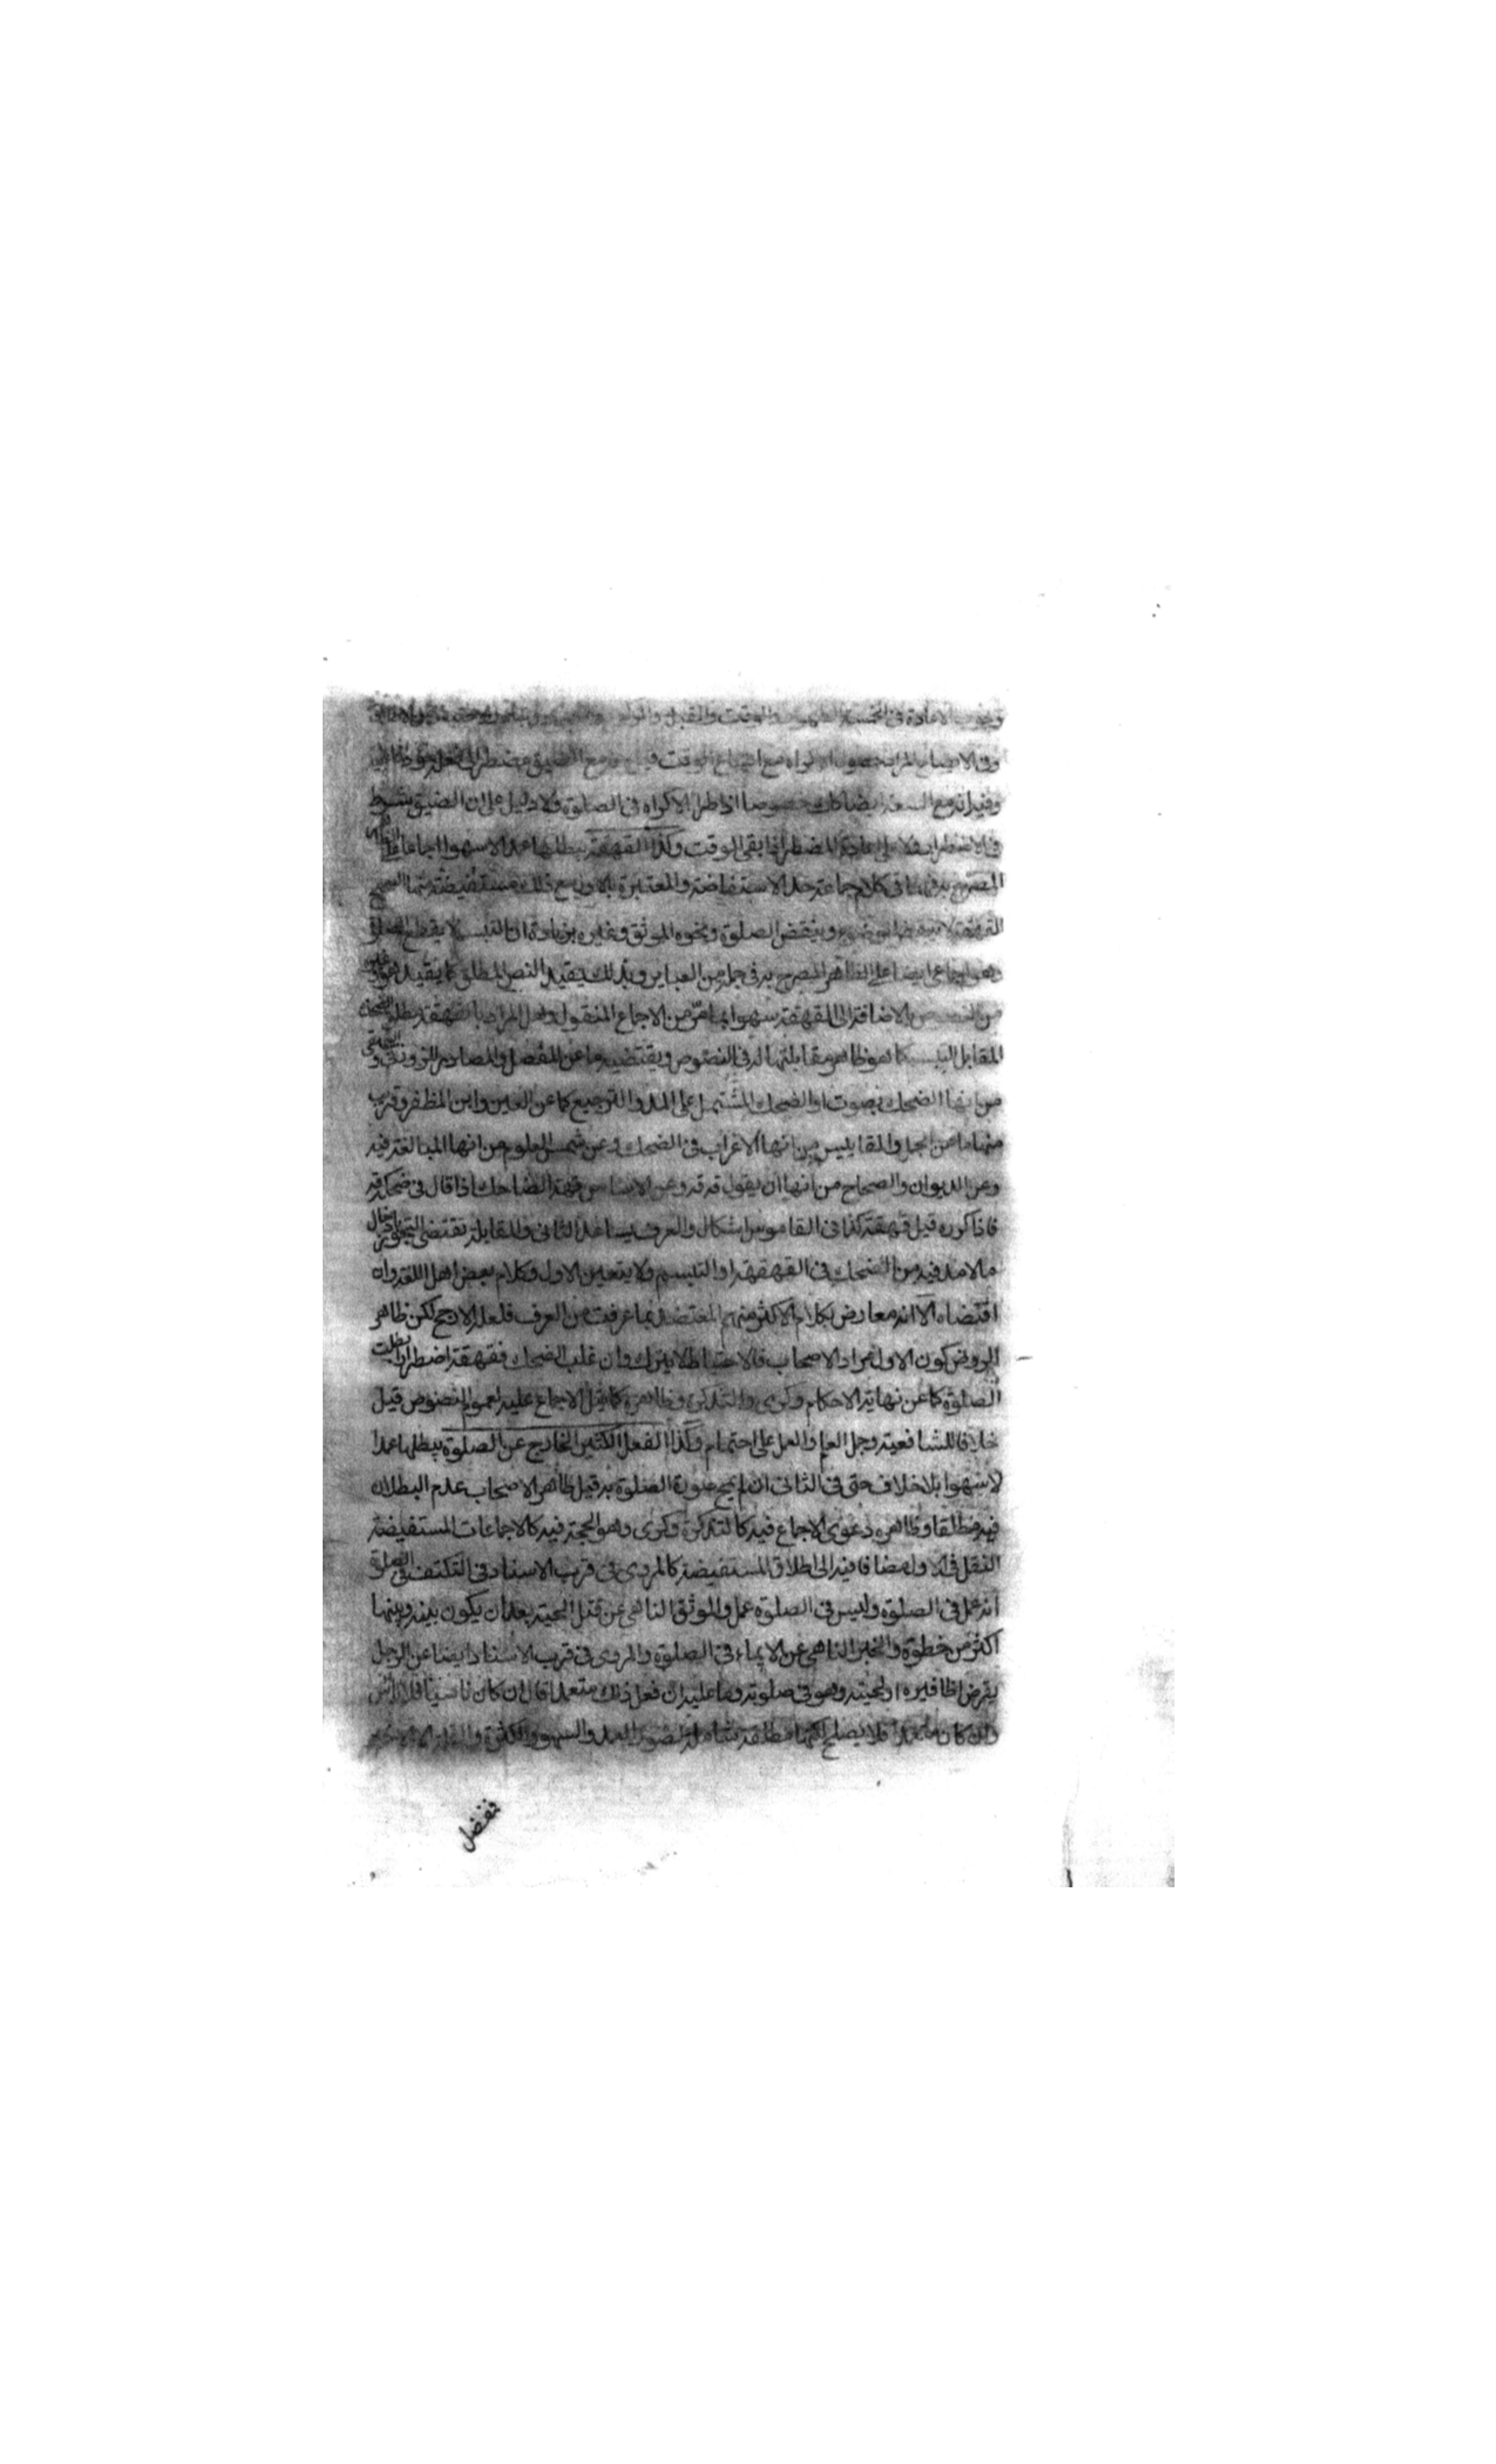 الاعادة فى الخمسة الطهور والوقت والقبلة
وفى الايضاح حصول الاكراه مع اتساع الوقت مع الضيق مضطر الى فعل
وفيه انه مع السعة ايضا كك خصوصا اذا طرا الاكراه فى الصلوة ولا دليل على ان الضيق شرط
فى الاضطرار بقى الوقت وكذا القهقهة يبطلها عمدا لا سهوا اجماعا
المصرح به فى كلام جماعة حد الاستفاضة والمعتبرة به مع ذلك مستفيضة منها الصحيح
القهقهة لا تنقض الوضوء وينقض الصلوة ونحوه الموثق وغيره بزيادة ان التبسم لا يقطع الصلوة
وهو اجماعى ايضا على الظاهر المصرح به فى جملة من العباير وبذلك يقيد النص المطلق كما يقيد هو وغيره
من النصوص بالاضافة الى القهقهة سهوا بما مر من الاجماع المنقول وهل المراد بالقهقهة مطلق الضحك
المقابل للتبسم كما هو ظاهر مقابلتها له فى النصوص ويقتضيه ما عن المفصل والمصادر للزوزنى والبيهقى
من انها الضحك بصوت او الضحك المشتمل على المد والترجيع كما عن العين وابن المظفر وقرب
منهما ما عن المجمل والمقاييس من انها الاغراب فى الضحك وعن شمس العلوم من انها المبالغة فيه
وعن الديوان والصحاح من انها ان يقول قه قه وعن الاساس قهقه الضاحك اذا قال فى ضحكه قه
فاذا كرره قيل قهقهة كما فى القاموس اشكال والعرف يساعد الثانى والمقابلة تقتضى التجوز بادخال
مالا مد فيه من الضحك فى القهقهة او التبسم ولا يتعين الاول وكلام بعض اهل اللغة وان
اقتضاه الا انه معارض بكلام الاكثر منهم المعتضد بما عرفت من العرف فلعله الارجح لكن ظاهر
الروض كون الاول مراد الاصحاب فالاحتياط لا يترك وان غلب الضحك فقهقه اضطرارا بطلت
الصلوة كما عن نهاية الاحكام وكرى والتذكرة وظاهره كما قيل الاجماع عليه لعموم النصوص قيل
خلافا للشافعية وجمل العلم والعمل على احتمال وكذا الفعل الكثير الخارج عن الصلوة يبطلها عمدا
لا سهوا بلا خلاف حتى فى الثانى ان لم يمح صورة الصلوة به قيل ظاهر الاصحاب عدم البطلان
فيه مطلقا وظاهره دعوى الاجماع فيه كالتذكرة وكرى وهو الحجة فيه كالاجماعات المستفيضة
النقل فى الاول مضافا فيه الى اطلاق المستفيضة كالمروى فى قرب الاسناد فى التكتف فى الصلوة
انه عمل فى الصلوة وليس فى الصلوة عمل والموثق الناهى عن قتل الحية بعد ان يكون بينه وبينها
اكثر من خطوة والخبر الناهى عن الايماء فى الصلوة والمروى فى قرب الاسناد ايضا عن الرجل
يقرض اظافيره او لحيته وهو فى صلوته وما عليه ان فعل ذلك متعمدا قال ان كان ناسيا فلا باس
وان كان متعمدا فلا يصلح لكنها مطلقة شاملة لصور العمد والسهو والكثرة والقلة